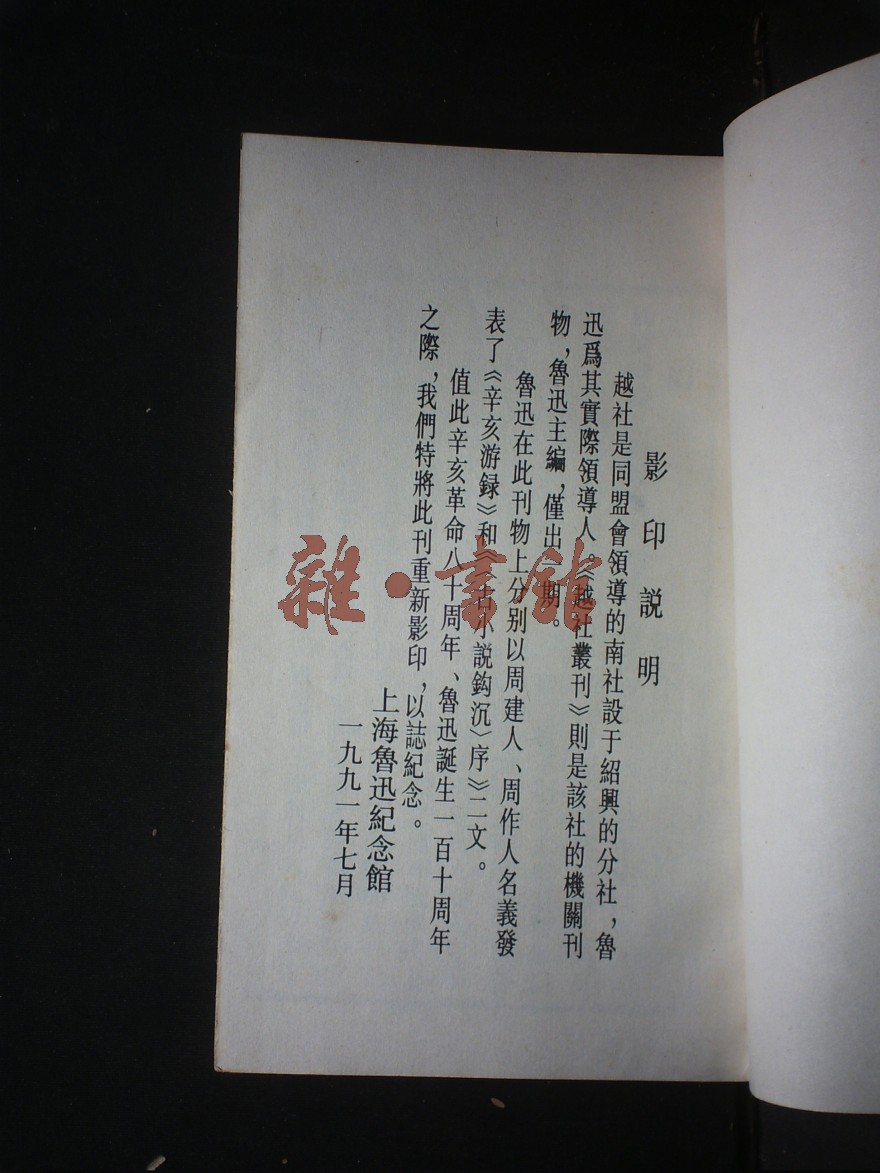 影印説明
越社是同盟會領導的南社設于紹興的分社，魯
迅爲其實際領導人。《越社叢刊》則是該社的機關刊
物，魯迅主編，僅出一期。
魯迅在此刊物上分别以周建人、周作人名義發
表了《辛亥游録》和《〈古小説鈎沉〉序》二文。
值此辛亥革命八十周年、魯迅誕生一百十周年
之際，我們特將此刊重新影印，以誌紀念。
上海魯迅紀念館
一九九一年七月
雜·書館